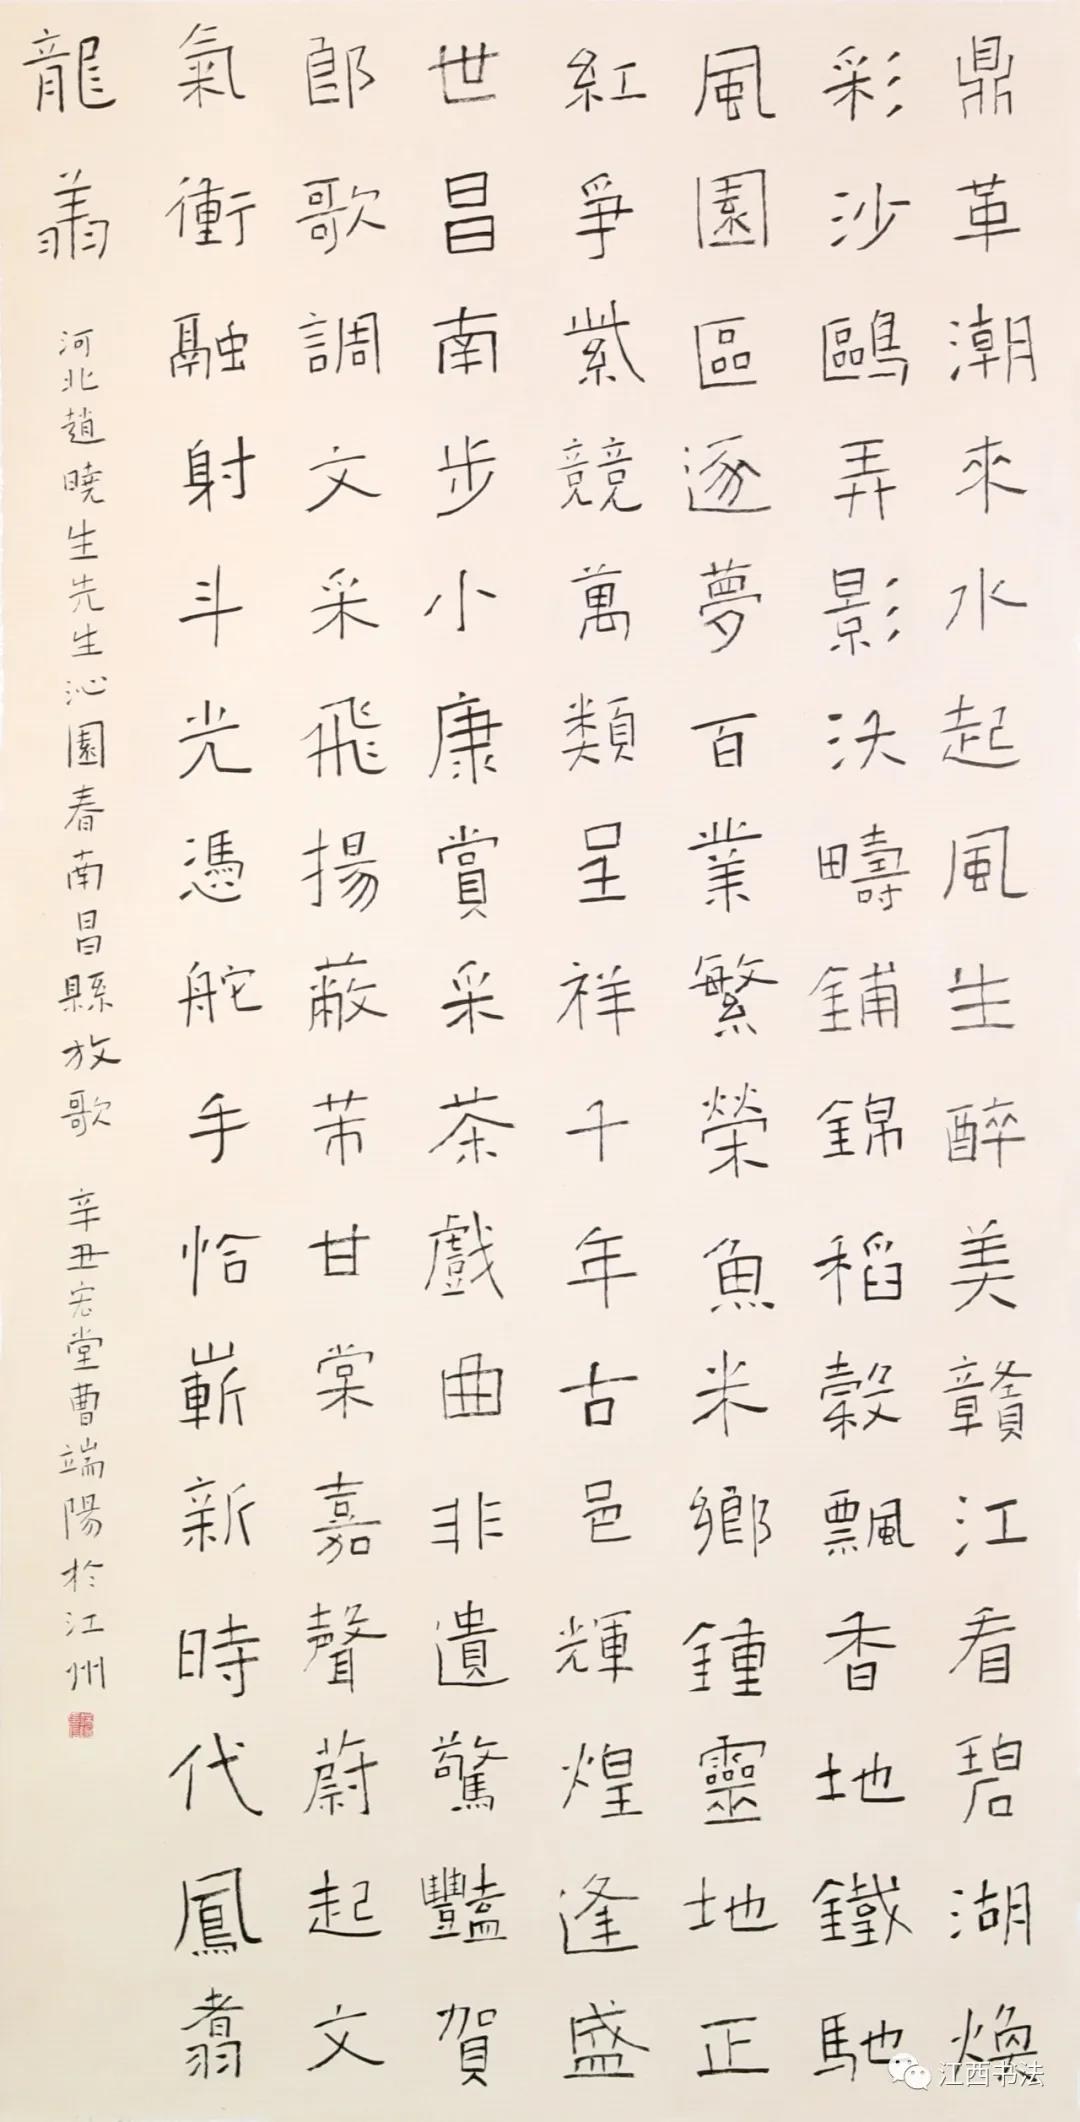 鼎革潮來水起風生醉美贛江看碧湖煥
彩沙鷗弄影沃疇鋪錦稻穀飄香地鐵馳
風園區逐夢百業繁榮魚米鄉鍾靈地正
紅爭紫競萬類呈祥千年古邑輝煌逢盛
世昌南步小康賞采茶戲曲非遺驚豔賀
郎歌調文采飛揚蔽芾甘棠嘉聲蔚起文
氣衝融射斗光憑舵手恰嶄新時代鳳翥
龍翥
河北趙曉生先生沁園春南昌縣放歌 辛丑宏堂曹端陽於江州
江西书法